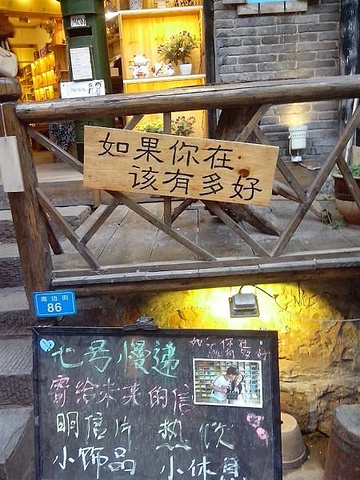 如果你在
该有多好
86
七号慢递
寄给未来的信
明信片 热饮
小饰品 小休息